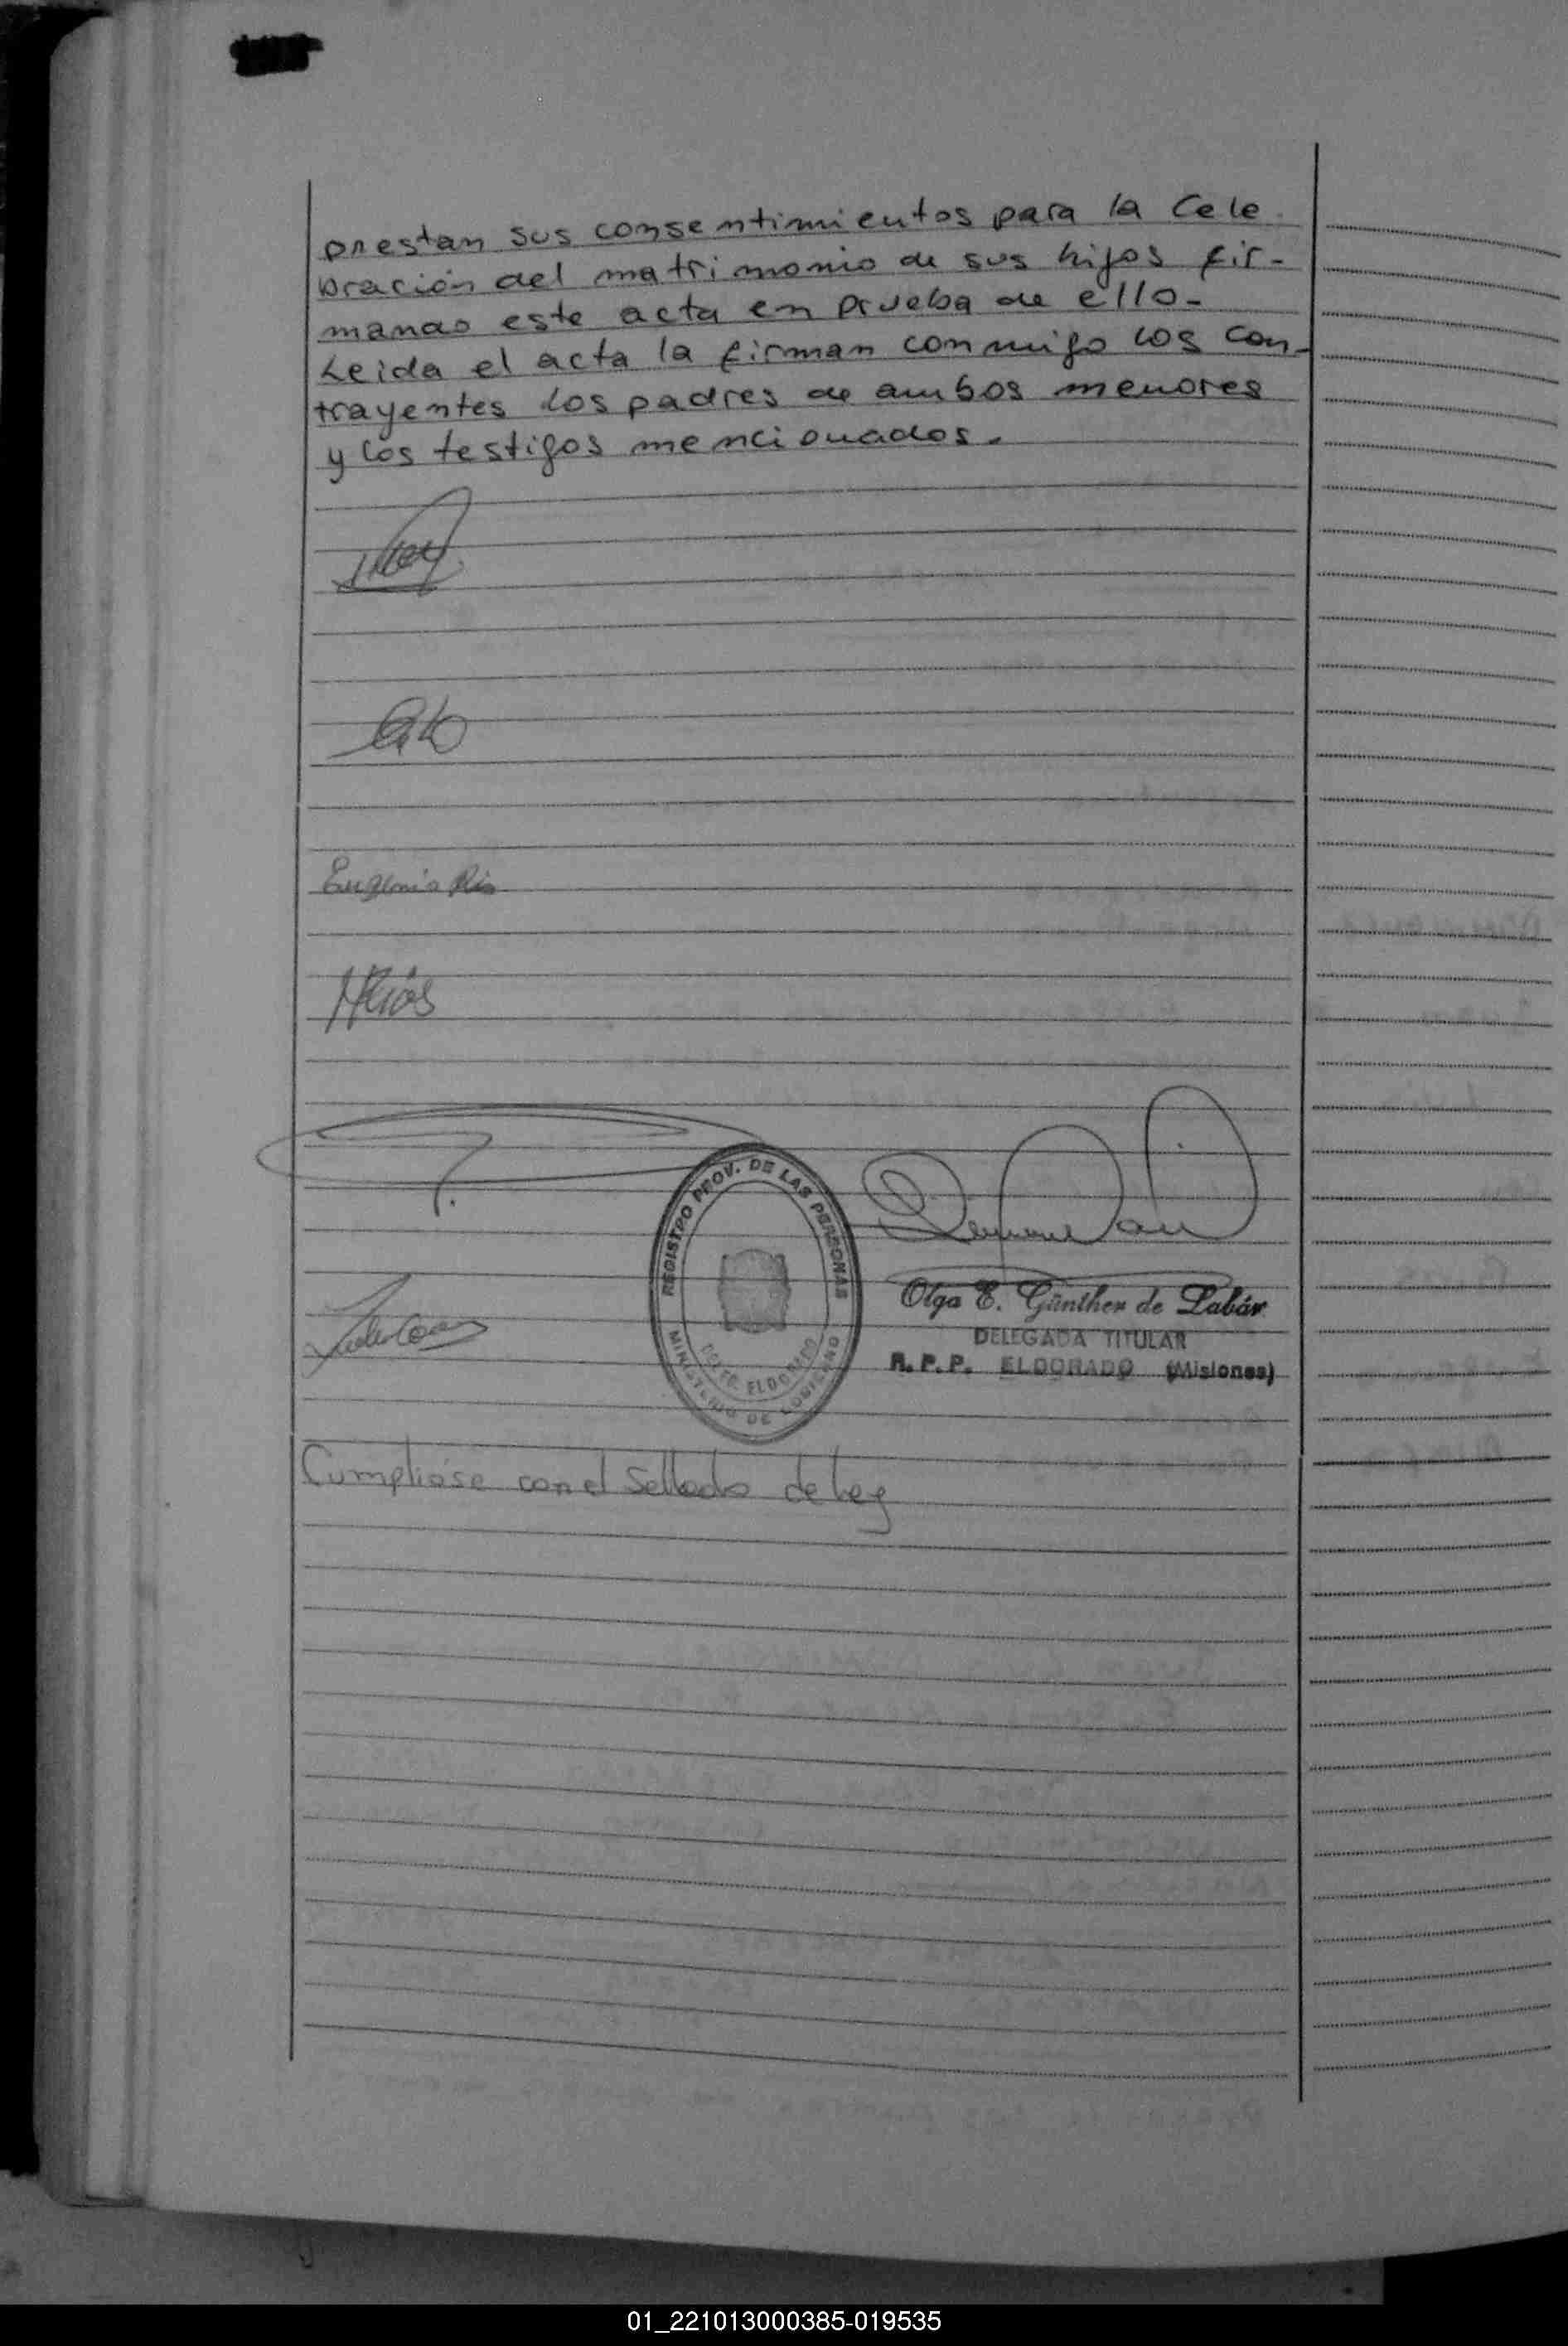 prestan sus consentimientos para la Cele
bración del matrimonio de sus hijos fir-
mando este acta en prueba de ello-
Leida el acta la firman conmigo los con-
trayentes los padres de ambos menores
y los testigos mencionados.
Eugenio
ARíos
REGISTRO PROV. DE LAS PERSONAS
MINISTERIO DE GOBIERNO
ELDORADO
Olga E. Günther de Labár
DELEGADA TITULAR
R. P. P. ELDORADO (Misiones)
Cumplióse con el Sellado de Ley
01_221013000385-019535